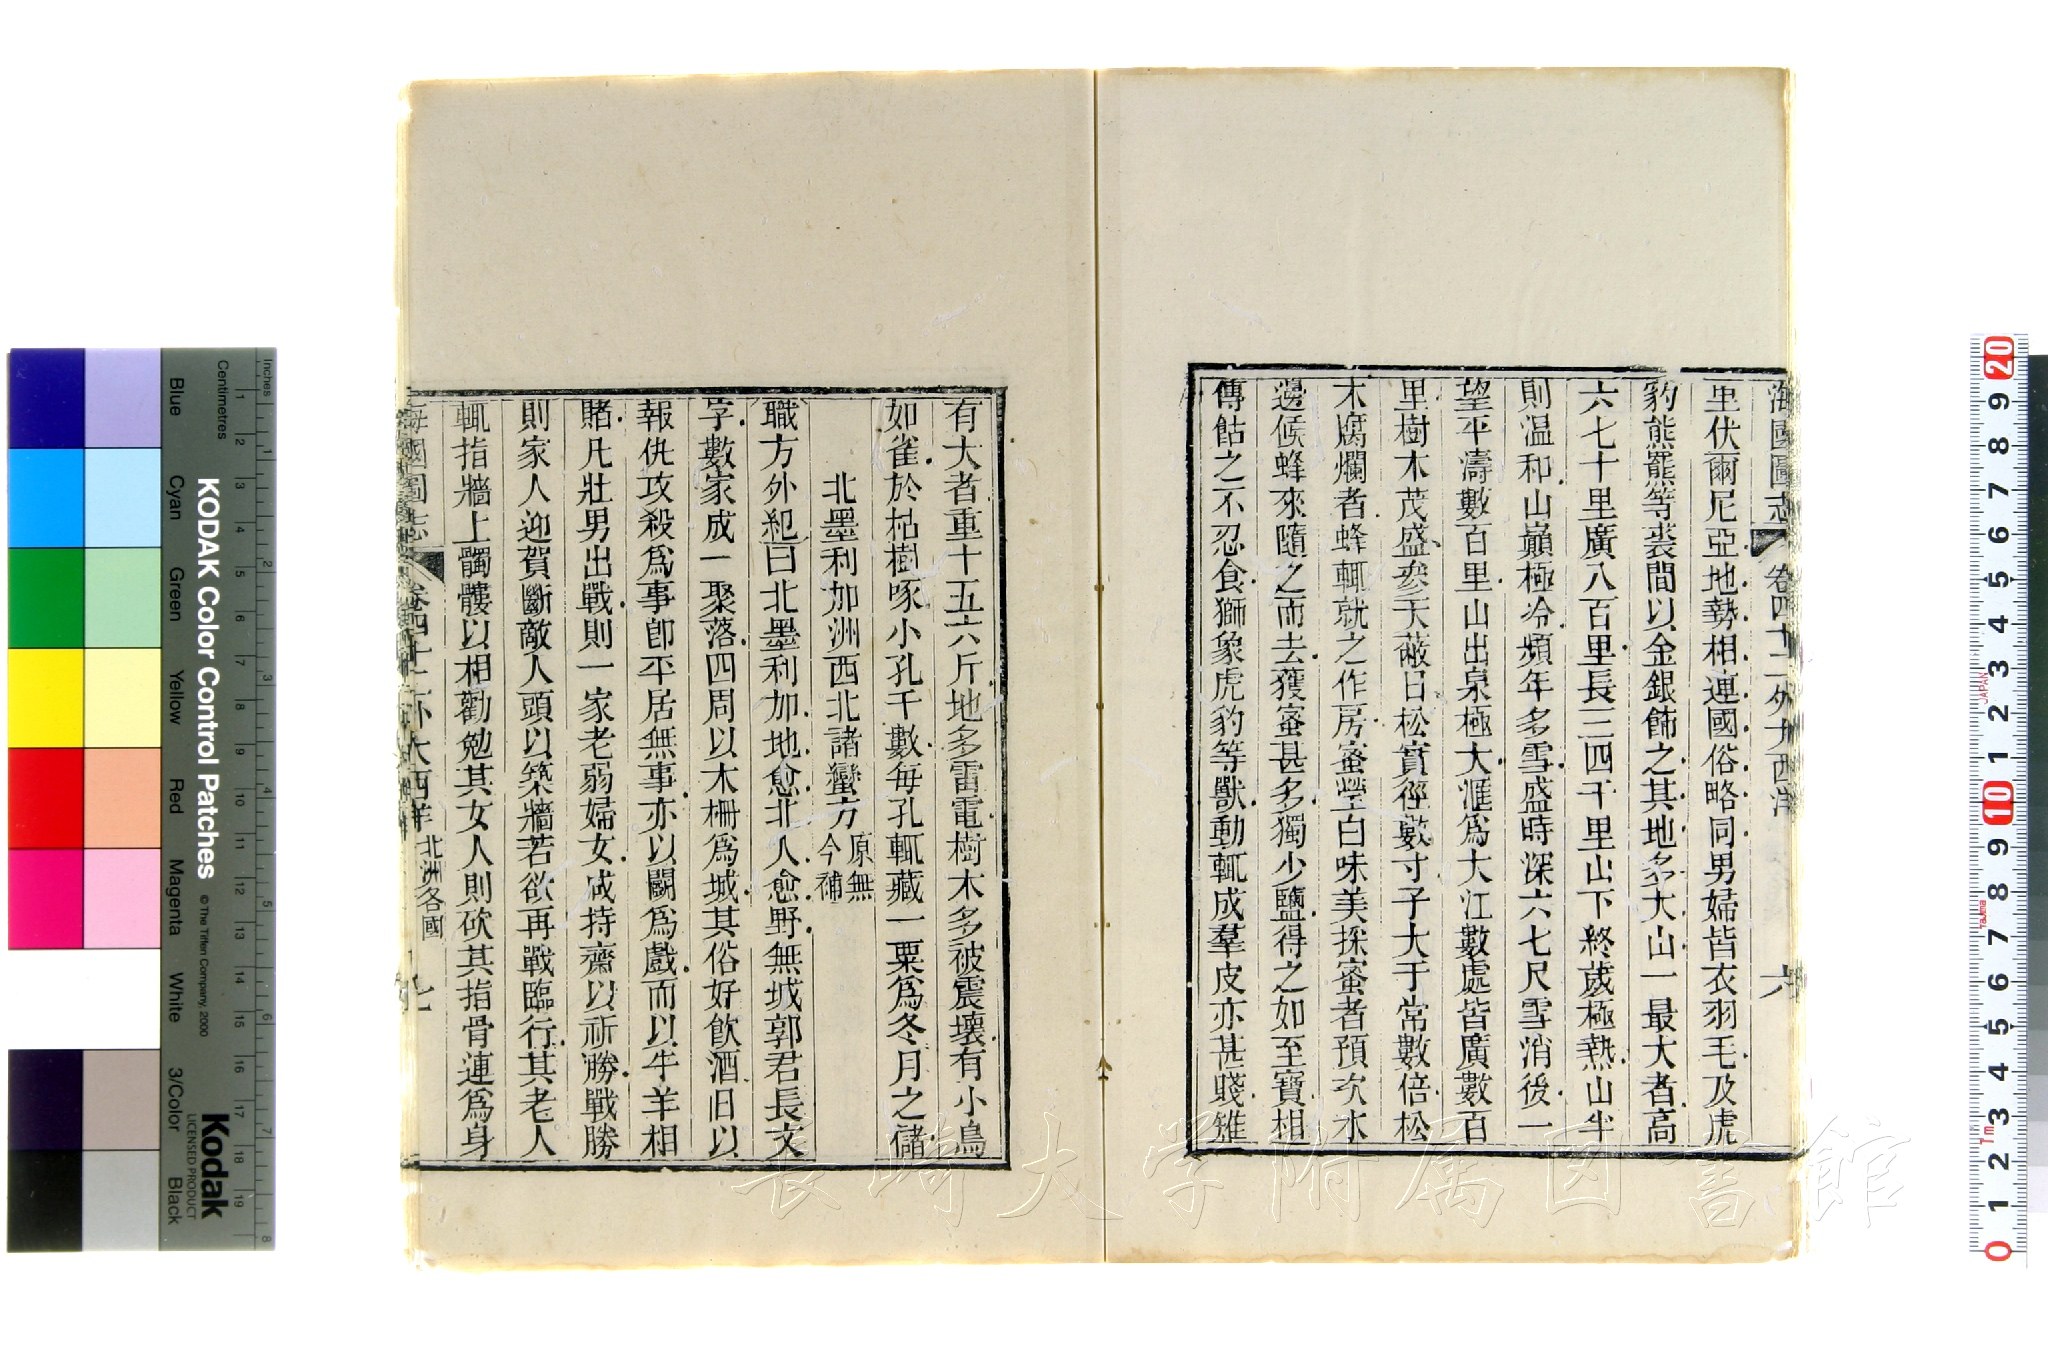 海國圖志 卷四十二 外大西洋 六
里伏爾尼亞地勢相連國俗略同男婦皆衣羽毛及虎
豹熊羆等裘間以金銀飾之其地多大山一最大者高
六七十里廣八百里長三四千里山下終歲極熱山半
則温和山巔極冷頻年多雪盛時深六七尺雪消後一
望平濤數百里山出泉極大滙爲大江數處皆廣數百
里樹木茂盛參天蔽日松實徑數寸子大于常數倍松
木腐爛者蜂輒就之作房蜜瑩白味美採蜜者預次水
邊候蜂來隨之而去獲蜜甚多獨少鹽得之如至寶相
傳飴之不忍食獅象虎豹等獸動輒成羣皮亦甚賤雉
有大者重十五六斤地多雷電樹木多被震壞有小鳥
如雀於枯樹啄小孔千數每孔輒藏一粟爲冬月之儲
北墨利加洲西北諸蠻方 原無今補
職方外紀曰北墨利加地愈北人愈野無城郭君長文
字數家成一聚落四周以木柵爲城其俗好飲酒旧以
報仇攻殺爲事卽平居無事亦以鬭爲戲而以牛羊相
賭凡壯男出戰則一家老弱婦女咸持齋以祈勝戰勝
則家人迎賀斷敵人頭以築牆若欲再戰臨行其老人
輒指牆上髑髏以相勸勉其女人則砍其指骨連爲身
海國圖志 卷四十二 外大西洋 北洲各國 七
KODAK Color Control Patches © The Tiffen Company, 2000
Kodak
LICENSED PRODUCT
Inches
Centimetres
Blue Cyan Green Yellow Red Magenta White 3/Color Black
JAPAN
長崎大学附属図書館